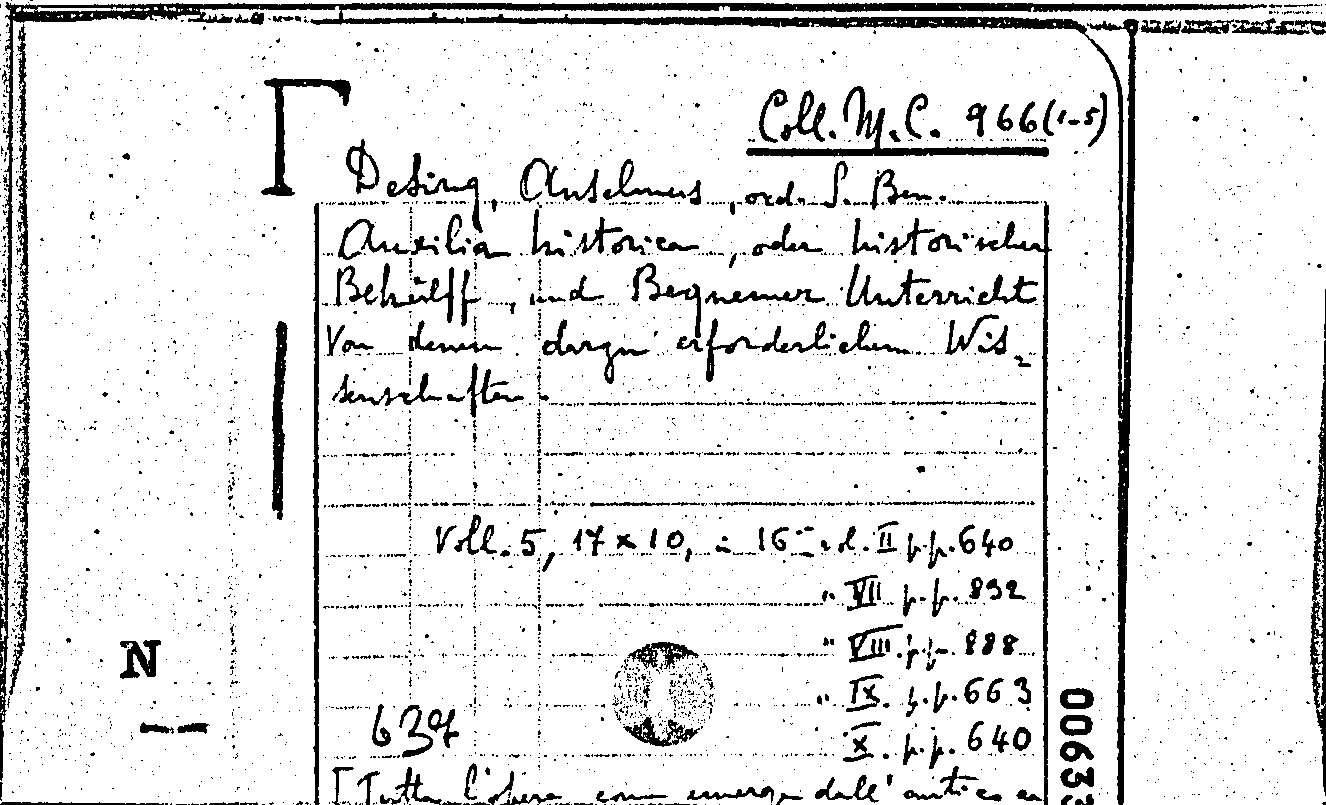 Coll. M. C. 966 (1-5)
Desing, Anselmus, ord. S. Ben.
Auxilia historica, oder historischer
Behülff, und Bequemer Unterricht
Von denen darzu erforderlichen Wis=
senschaften.
Voll. 5, 17 x 10, in 16° vol. II p.p. 640
" VII p.p. 832
" VIII. p.p. 888
N
" IX. p.p. 663
637
X. p.p. 640
0063
[Tutta l'opera come emerge dall'antico